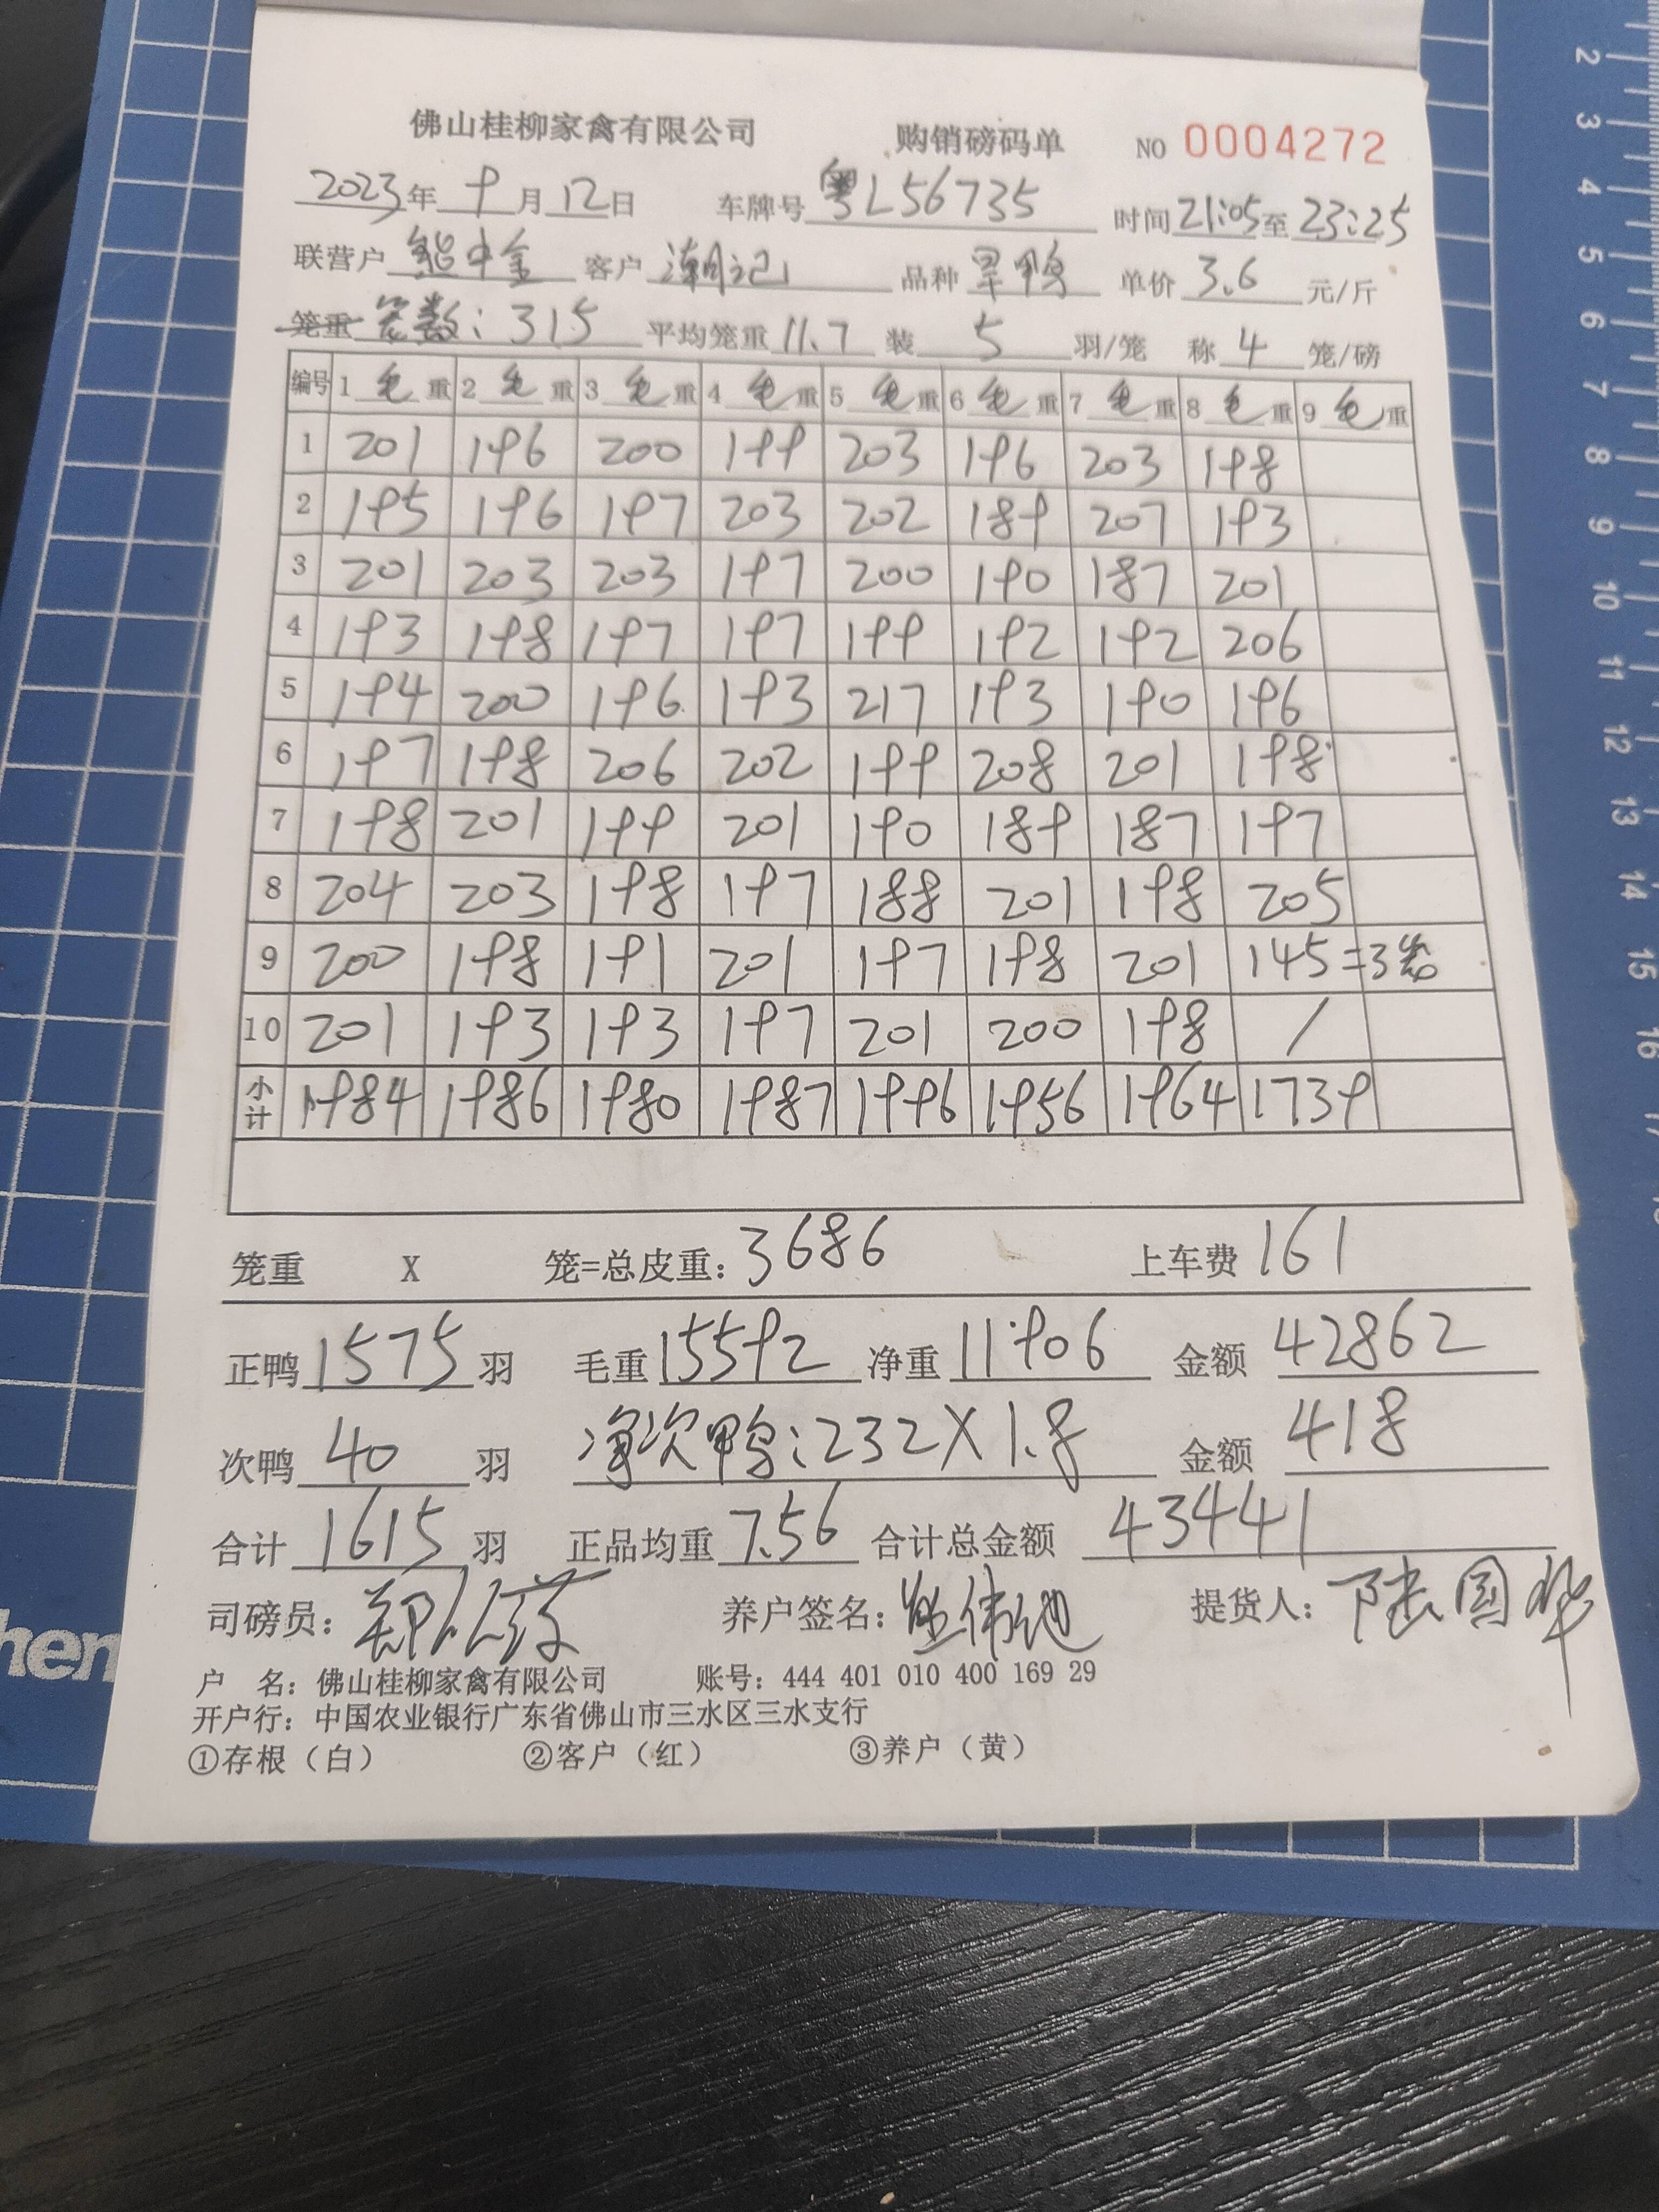 佛山桂柳家禽有限公司 购销磅码单 NO 0004272
2023年 9月 12日 车牌号 粤L56735 时间 21:05 至 23:25
联营户 熊中金 客户 潮记 品种 旱鸭 单价 3.6 元/斤
笼重 笼数: 315 平均笼重 11.7 装 5 羽/笼 称 4 笼/磅
编号 1 毛重 2 毛重 3 毛重 4 毛重 5 毛重 6 毛重 7 毛重 8 毛重 9 毛重
1 201 196 200 199 203 196 203 198
2 195 196 197 203 202 189 207 193
3 201 203 203 197 200 190 187 201
4 193 198 197 197 199 192 192 206
5 194 200 196 193 217 193 190 196
6 197 198 206 202 199 208 201 198
7 198 201 199 201 190 189 187 197
8 204 203 198 197 188 201 198 205
9 200 198 191 201 197 198 201 145=3笼
10 201 193 193 197 201 200 198 /
小计 1984 1986 1980 1987 1996 1956 1964 1739
笼重 X 笼=总皮重: 3686 上车费 161
正鸭 1575 羽 毛重 15592 净重 11906 金额 42862
次鸭 40 羽 净次鸭: 232X1.8 金额 418
合计 1615 羽 正品均重 7.56 合计总金额 43441
司磅员: 养户签名: 提货人: 陆国华
户 名: 佛山桂柳家禽有限公司 账号: 444 401 010 400 169 29
开户行: 中国农业银行广东省佛山市三水区三水支行
①存根（白） ②客户（红） ③养户（黄）
hen
2
3
4
5
6
7
8
9
10
11
12
13
14
15
16